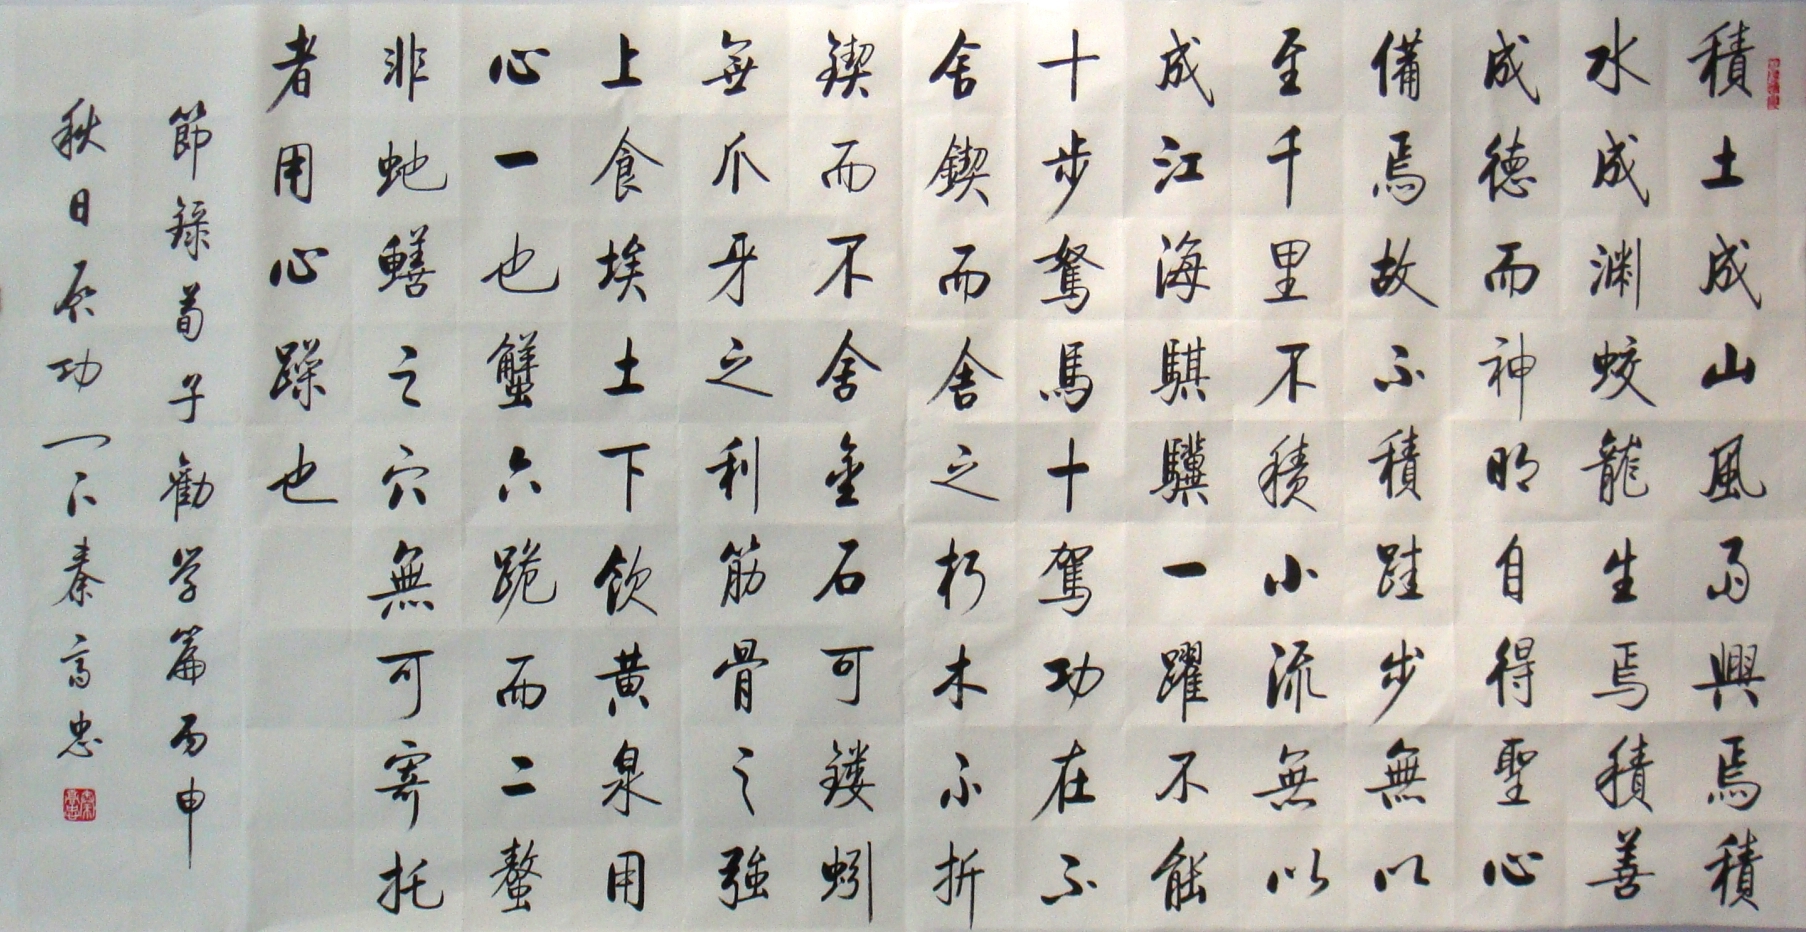 積土成山風雨興焉積
水成渊蛟龍生焉積善
成德而神明自得聖心
備焉故不積跬步無以
至千里不積小流無以
成江海騏驥一躍不能
十步駑馬十駕功在不
舍鍥而舍之朽木不折
鍥而不舍金石可鏤蚓
無爪牙之利筋骨之強
上食埃土下飲黄泉用
心一也蟹六跪而二螯
非蛇鱔之穴無可寄托
者用心躁也
節錄荀子勸学篇丙申
秋日功秦高忠